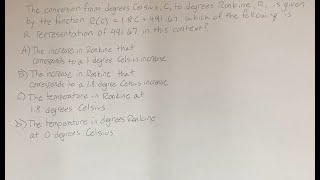 The conversion from degrees Celsius, C, to degrees Rankine, R, is given
by the function R(C) = 1.8C + 491.67 which of the following is
a representation of 491.67 in this context?
A) The increase in Rankine that
corresponds to a 1 degree Celsius increase
B) The increase in Rankine that
corresponds to a 1.8 degree Celsius increase
C) The temperature in Rankine at
1.8 degrees Celsius
D) The temperature in degrees Rankine
at 0 degrees Celsius